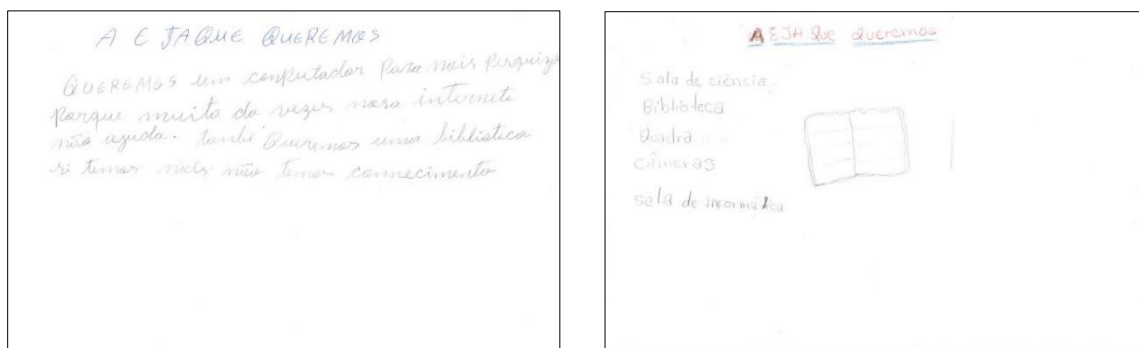 A E JAQUE QUEREMOS
QUEREMOS um conputador Para nois Perquiza
Parque muita da vezes nosa internete
não ajuda. també Queremos uma biblioteca
si temos mais não temos connecimento
A EJA Que Queremos
Sala de ciência
Biblioteca
Quadra
Câmeras
sala de informática